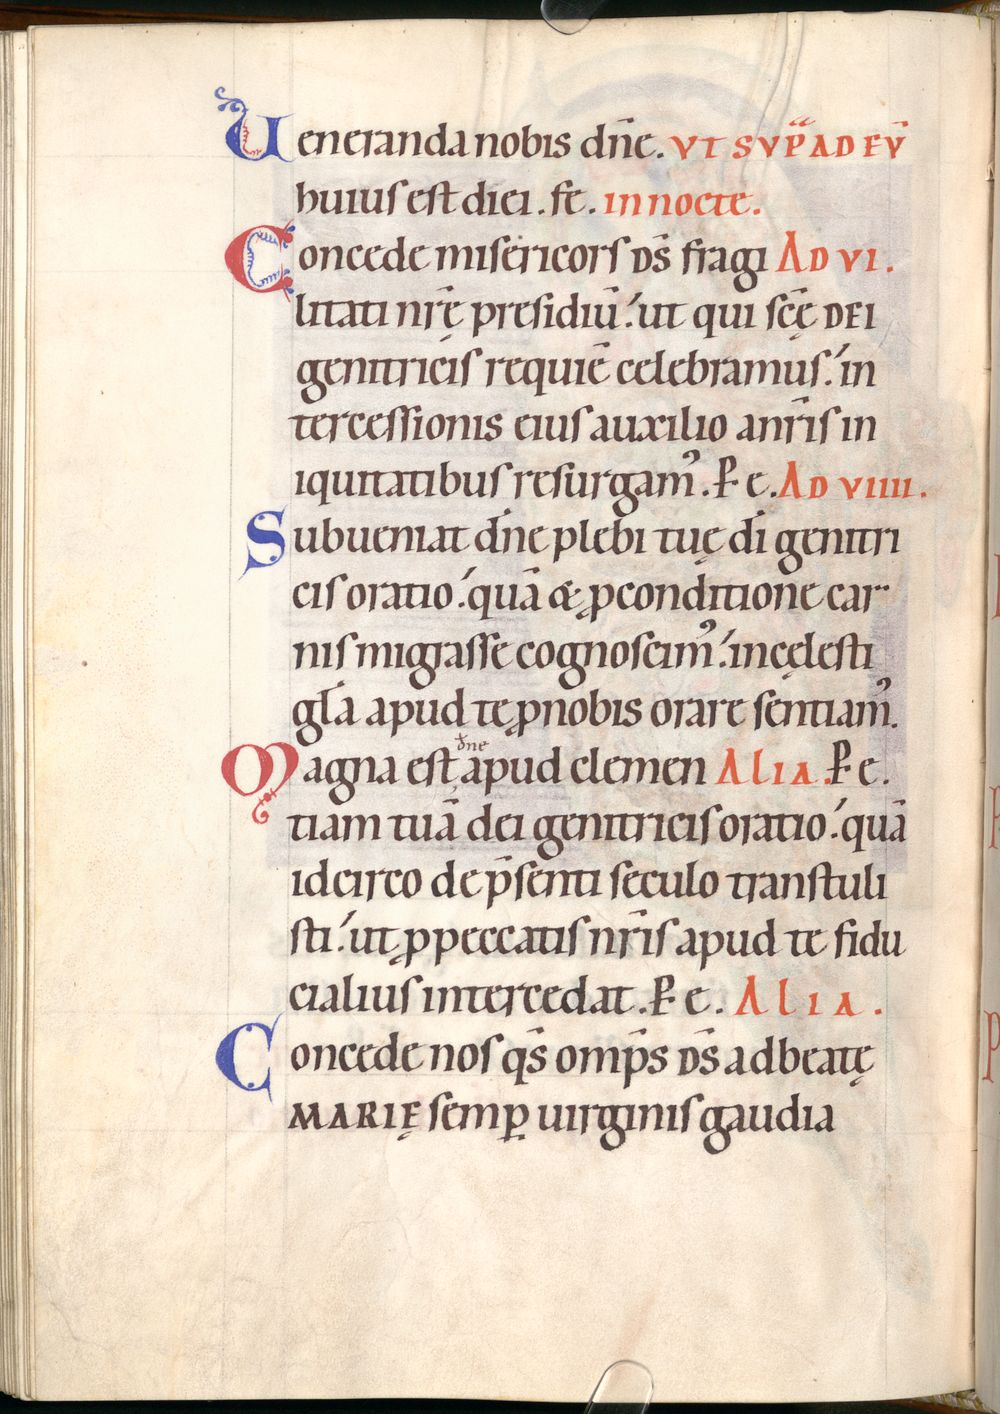 Ueneranda nobis dn̄e. VT SVP̄ AD EV̄
huius est diei. fe. in nocte.
Concede misericors DS̄ fragi AD VI.
litati nr̄ę presidiū. ut qui sc̄ę DEI
genitricis requiē celebramus. in
tercessionis eius auxilio anr̄is in
iquitatibus resurgam᾽. P̶ e. AD VIIII.
Subueniat dn̄e plebi tuę dī genitri
cis oratio. quā & ꝓconditione car
nis migrasse cognoscim᾽. incęlesti
gl̄a apud te ꝓnobis orare sentiam᾽.
Magna est dn̄e apud clemen ALIA. P̶ e.
tiam tuā dei genitricis oratio. quā
idcirco de p̄senti seculo transtuli
sti. ut ꝓpeccatis nr̄is apud te fidu
cialius intercedat. P̶ e. ALIA.
Concede nos qs̄ omp̄s DS̄ adbeatę
MARIĘ semꝑ uirginis gaudia